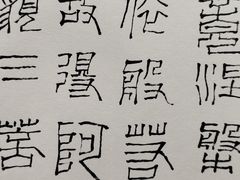 竟涅槃
依般若
故得阿
藐三菩